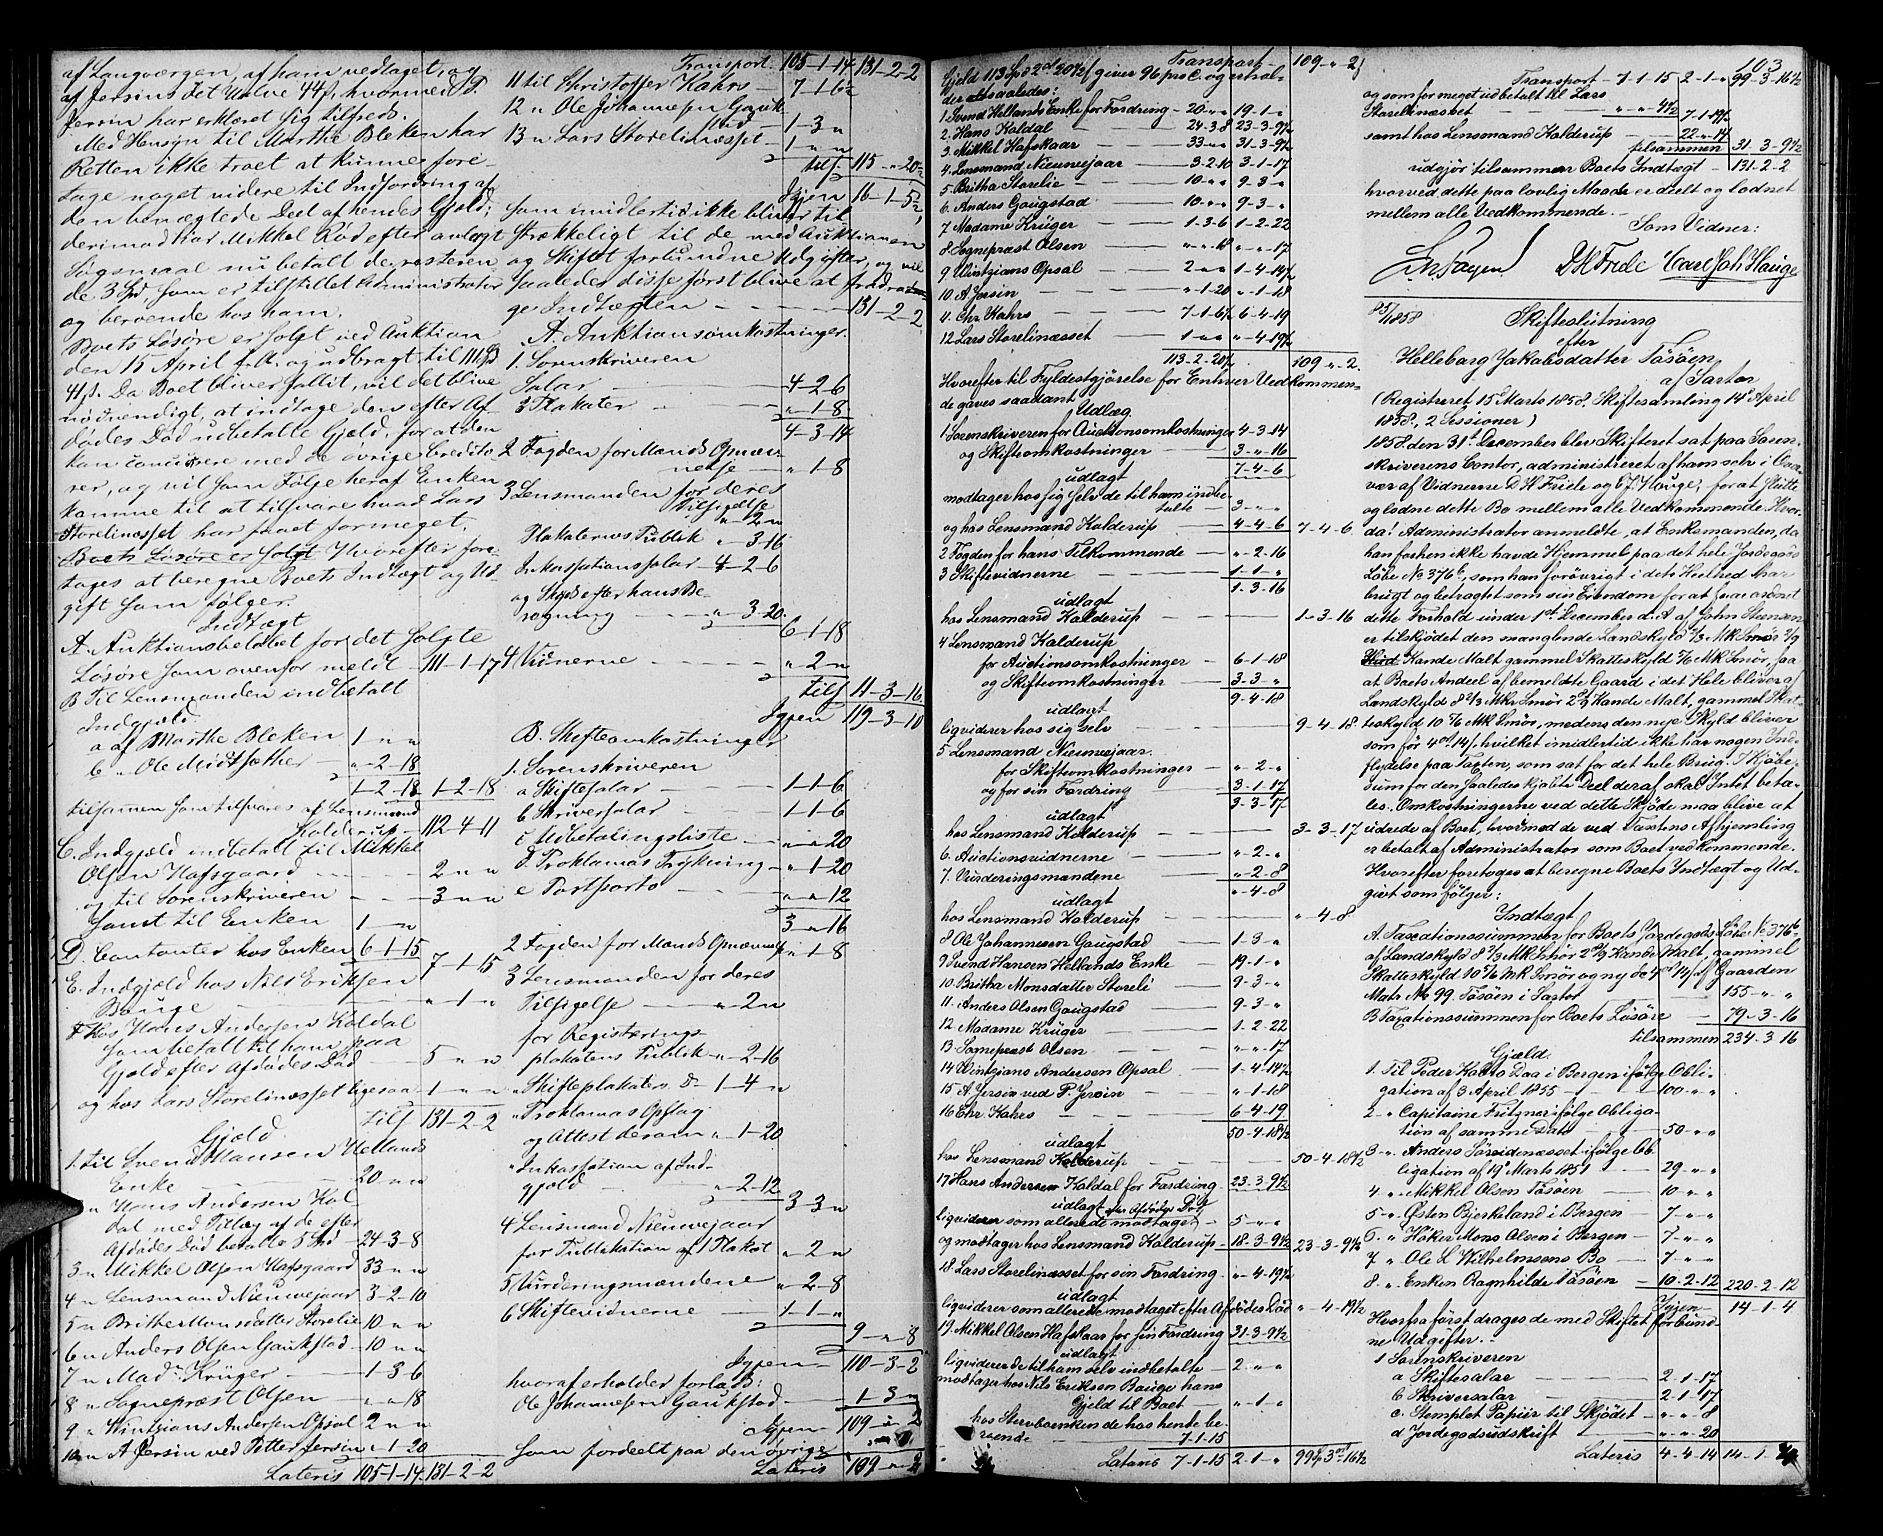 af Langværgen, af ham vedtaget, og
af Jersins det Halve 44 s, hvormed P.
Jersin har erklæret sig tilfreds.
Med Hensyn til Marthe Bleken har
Retten ikke troet at kunne fore-
tage noget videre til Indfordring af
den benægtede Deel af hendes Gjæld;
derimod har Mikkel Rød efter anlagt
Søgsmaal nu betalt de resteren
de 3 Spd som er tilstillet Administrator
og beroende hos ham.
Boets Løsøre er solgt ved Auktion
den 15 April f. A. og udbragt til 111 Spd
41 s. Da Boet bliver fallit, vil det blive
nødvendigt, at indtage den efter Af-
dødes Død udbetalte Gjæld, for at den
kan concurere med de øvrige Credito-
rer, og vil som Følge heraf Enken
komme til at tilsvare hvad Lars
Storelinæsset har faaet for meget.
Boets Løsøre er solgt Hvorefter fore-
tages at beregne Boets Indtægt og Ud-
gift som følger.
Indtægt
A. Auktionsbeløbet for det solgte
Løsøre som ovenfor meldt - 111-1-17
B Til Lensmanden indbetalt
Indgjæld
a af Marthe Bleken 1 " "
b " Ole Midtsæther - "-2-18
1-2-18 1-2-18
tilsamen som tilsvares af Lensmand
Kolderup - 112-4-11
C. Indgjæld indbetalt til Mikkel
Olsen Hafsgaard - 2 " "
og til Sorenskriveren - 3 " "
Samt til Enken 1 - "
D. Contanter hos Enken 6-1-15 7-1-15
E. Indgjæld hos Nils Eriksen
Bauge - "-1-"
F Hos Hans Andersen Koldal
som betalt til ham paa
Gjæld efter Afdødes Død 5 " "
og hos Lars Storelinæsset ligesaa 1 - " "
tils 131-2-2
Gjæld.
1. til Svend Hansen Hellands
Enke - 20 " "
" Hans Andersen Kol-
dal med Tillæg af de efter
Afdødes Død betalte 5 Spd 24-3-8
3 " Mikkel Olsen Hafsgaard 33 " "
4 " Lensmand Nieuwejaar 3-2-10
5 " Britha Monsdatter Storelie 10 " "
6 " Anders Olsen Gaukstad - 10 " "
7 " Mad. Krüger - 1-3-6
8 " Sognepræst Olsen - " " 18
9 " Wintzians Andersen Opsal 2 " "
10 " A Jersin ved Petter Jersin " 1-20
Lateris 105-1-14 131-2-2
Transport. 105-1-14 131-2-2
11 til Christoffer Kahrs - 7-1-6½
12 " Ole Johannesen Gauk-
stad - 1-3 "
13 " Lars Storelinæsset - 1 - " "
tils 115-"-20½
Igjen 16-1-5½
som imidlertid ikke bliver til-
strækkeligt til de med Auktionen
og Skiftet forbundne Udgifter, og vil
saaledes disse først blive at fradra-
ge Indtægten - 131-2-2
A. Auktionsomkostninger.
1. Sorenskriveren
Salar - 4-2-6
3 Plakater - "-1-8
4-3-14
2 Fogden for Mands Opnæv-
nelse - "-1-8
3 Lensmanden for deres
Tilsigelse "-2-"
Plakaternes Publik "-3-16
Inkassationssalar - 4-2-6
og Skyds efter hans Be-
regning - "-3-20
6-1-18
4 Vidnerne - "-2-"
tils 11-3-16
Igjen 119-3-10
B. Skifteomkostninger
1. Sorenskriveren
a Skiftesalar - 1-1-6
b Skriversalar - 1-1-6
c Udbetalingsliste - "-"-20
d. Proklamas Trykning - "-1-20
e Postporto - " " 12
3-"-16
2 Fogden for Mands Opnævnelse "-1-8
3 Lensmanden for deres
Tilsigelse - "-2-"
for Registerings-
plakatens Publik - "-2-16
" Skifteplakaten do - 1-4-"
" Proklamas Opslag
og Attest derom "-1-20
" Inkassation af Ind-
gjæld - "-2-12
3-3-"
4 Lensmand Nieuwejaar
for Publikation af 1 Plakat "-2-"
5 Vurderingsmændene - "-2-8
6 Skiftevidnerne - 1-1-"
9-"-8
Igjen 110-3-2
hvoraf erholder forlods:
Ole Johannesen Gaukstad - 1-3-"
Igjen 109-"-2
som fordeelt paa den øvrige
Lateris 109-"-2
Transport - 109-"-2
Gjeld 113 Spd 2 ort 20½ s giver 96 pro C. og erhol-
der saaledes:
1 Svend Hellands Enke for Fordring - 20-"-" 19-1-"
2. Hans Koldal 24-3-8 23-3-9½
3. Mikkel Hafskaar - 33-"-" 31-3-9½
4. Lensmand Nieuwejaar - 3-2-10 3-1-17
5 Britha Storelie - 10-"-" 9-3-"
6. Anders Gaugstad - 10-"-" 9-3-"
7 Madame Krüger - 1-3-6 1-2-22
8 Sognepræst Olsen - "-"-18 "-"-17
9 Wintzians Opsal - 2-"-" 1-4-14½
10. A Jersin - "-1-20 "-1-18
11. Chr. Kahrs - 7-1-6½ 6-4-19
12 Lars Storelinæsset - 1-"-" "-4-19½
113-2-20½ 109-"-2.
Hvorefter til Fyldestgjørelse for Enhver Vedkommen-
de gaves saadant Udlæg
1 Sorenskriveren for Auctionsomkostninger 4-3-14
og Skifteomkostninger - 3-"-16
7-4-6
udlagt
modtager hos sig selv de til ham indbe-
talte - 3-"-"
og hos Lensmand Kolderup - 4-4-6 7-4-6
2 Fogden for hans Tilkommende - "-2-16
3 Skiftevidnerne - 1-1-"
1-3-16
udlagt
hos Lensmand Kolderup - 1-3-16
4 Lensmand Kolderup
for Auctionsomkostninger - 6-1-18
og Skifteomkostninger - 3-3-"
9-4-18
udlagt
liqviderer hos sig selv - 9-4-18
5 Lensmand Nieuwejaar.
for Skifteomkostninger - "-2-"
og for sin Fordring - 3-1-17
3-3-17
udlagt
hos Lensmand Kolderup - 3-3-17
6. Auctionsvidnerne - "-2-"
7. Vurderingsmændene - "-2-8
"-4-8
udlagt
hos Lensmand Kolderup - "-4-8
8 Ole Johannesen Gaugstad - 1-3-"
9 Svend Hansen Hellands Enke - 19-1-"
10 Britha Monsdatter Storeli - 9-3-"
11. Anders Olsen Gaugstad - 9-3-"
12 Madame Krüger - 1-2-22
13 Sognepræst Olsen - "-"-17
14 Wintzians Andersen Opsal - 1-4-14½
15 A Jersin ved P. Jersin - "-1-18
16 Chr. Kahrs - 6-4-19
50-4-18½
udlagt
hos Lensmand Kolderup - 50-4-18½
17 Hans Andersen Koldal for Fordring - 23-3-9½
udlagt
liqviderer som allerede modtaget efter Afdødes Død - 5-"-"
og modtager hos Lensmand Kolderup - 18-3-9½ 23-3-9½
18 Lars Storelinæsset for sin Fordring - "-4-19½
udlagt
liqviderer som allerede modtaget efter Afdødes Død "-4-19½
19. Mikkel Olsen Hafskaar for sin Fordring 31-3-9½
udlagt
liqviderer de til ham selv indbetalte - 2-"-"
modtager hos Nils Eriksen Bauge hans
Gjeld til Boet - "-1-"
hos Stervboenken de hos hende be-
roende 7-1-15
Lateris 7-1-15 2-1-" 99 Spd 3 ort 16½
103
Transport - 7-1-15 2-1-" 99-3-16½
og som for meget udbetalt til Lars
Storelinæsset - "-"-4½ 7-1-19½
samt hos Lensmand Kolderup - 22-"-14
tilsammen 31-3-9½
udgjør tilsammen Boets Indtægt - 131-2-2
hvorved dette paa lovlig Maade er deelt og lodnet
mellem alle Vedkommende. -
Som Vidner:
D H Fride Carl Joh. Hauge
1858
Skifteslutning
efter
Helleborg Jakobsdatter Tøsöen,
af Sartor
(Registreret 15 Marts 1858, Skiftesamling 14 April
1858, 2 Sessioner)
1858 den 31t December blev Skifteret sat paa Soren-
skriverens Contor, administreret af ham selv i Over-
vær af Vidnerne D H Fride og C J Hauge, for at slutte
og lodne dette Bo mellem alle Vedkommende Hvor-
da! Administrator anmeldte, at Enkemanden, da
han forhen ikke havde Hjemmel paa det hele Jordegods
Løbe No 376b, som han forövrigt i dets Heelhed har
brugt og betragtet som sin Eiendom for at faae ordnet
dette Forhold under 1st December d. A af John Steensen
er tilskjödet den manglende Landskyld ⅔ Mk Smør 2/9
Kande Malt gammel Skatteskyld ⅚ Mk Smør, saa
at Boets Andeel af bemeldte Gaard i det Hele bliver af
Landskyld 8 ⅔ Mkr Smør 2 2/9 Kande Malt, gammel Skat-
teskyld 10 ⅚ Mk Smør, medens den nye Skyld bliver
som før 4 ort 14 s, hvilket imidlertid ikke har nogen Ind-
flydelse paa Taxten, som sat for det hele Brug. I Kjøbe-
sum for den saaledes kjøbte Deel deraf skal Intet beta-
les. Omkostningerne ved dette Skjøde maa blive at
udrede af Boet, hvormod de ved Taxtens Afhjemling
er betalt af Administrator som Boet vedkommende.
Hvorefter foretoges at beregne Boets Indtægt og Ud-
givt som følger:
Indtægt
A. Taxationssummen for Boets Jordegods Løbe No 376b
af Landskyld 8 ⅔ Mk Smör 2 2/9 Kande Malt, gammel
Skatteskyld 10 ⅚ Mk Smör og ny do 4 ort 14 s af Gaarden
Matr No 99. Tösöen i Sartor 155-"-"
B Taxationssummen for Boets Lösöre - 79-3-16
tilsammen 234-3-16
Gjeld.
1. Til Peder Krohn Daa i Bergen ifölge Obli-
gation af 3 April 1855 - 100-"-"
2 - " Capitaine Fritzner ifölge Obliga-
tion af samme Dato - 50-"-"
3 - " Anders Söreidenæsset ifölge Ob-
ligation af 19de Marts 1851 - 29-"-"
4 " Mikkel Olsen Tösöen - 10-"-"
5 " Østen Bjerkeland i Bergen - 7-"-"
6 " Höker Mons Olsen i Bergen - 7-"-"
7 " Ole L Wilhelmsens Bo - 7-"-"
8 " Enken Ragnhilde Tösöen - 10-2-12 220-2-12
Igjen 14-1-4
Hvorfra först drages de med Skiftet forbund-
ne Udgifter. -
1 Sorenskriveren
a Skiftesalar - 2-1-17
b Skriversalar - 2-1-17
c. Stemplet Papiir til Skjödet - "-"-8
d Jordegodsudskrift - "-"-20
Lateris 4-4-14 14-1-4